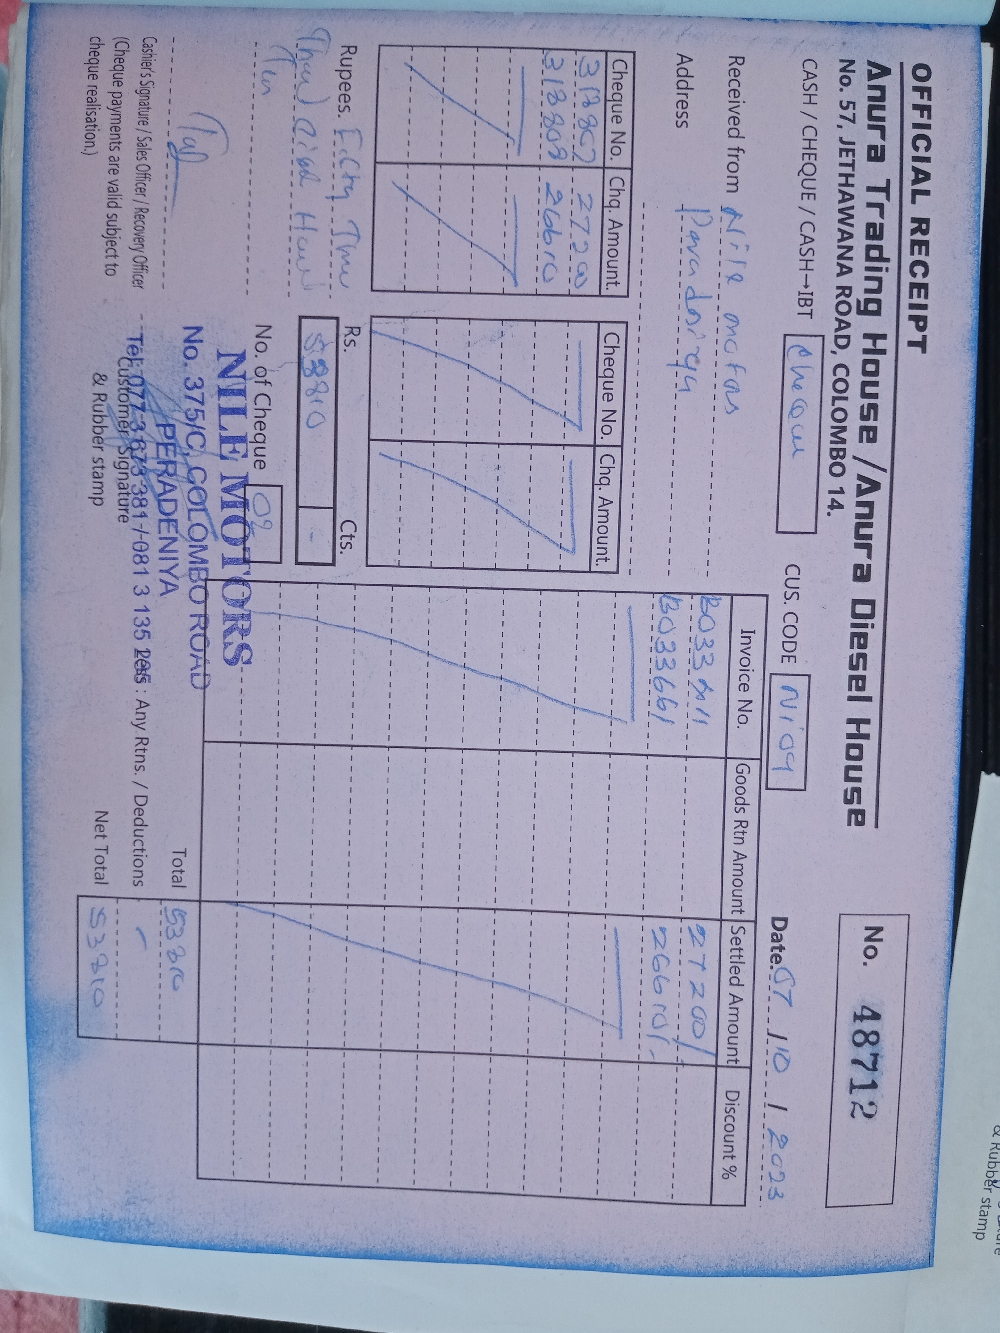 OFFICIAL RECEIPT
Anura Trading House / Anura Diesel House
No. 57, JETHAWANA ROAD, COLOMBO 14.
No. 48712
CASH / CHEQUE / CASH→IBT Cheque
CUS. CODE Ni09
Date. 07 / 10 / 2023
Received from Nile motors
Address Paradniya
Cheque No. Chq. Amount. Cheque No. Chq. Amount.
313807 27200
313808 26610
Invoice No. Goods Rtn Amount Settled Amount Discount %
B033 27200/
B033661 26610/-
Rupees. Fifty Three
Thousand Eight Hund
Ten
Rs. Cts.
53810 -
No. of Cheque 02
NILE MOTORS
No. 375/C, COLOMBO ROAD
PERADENIYA
Tel: 077-3 673 381 / 081 3 135
Cashier's Signature / Sales Officer / Recovery Officer
(Cheque payments are valid subject to
cheque realisation.)
Customer Signature
& Rubber stamp
Total 53810
Less : Any Rtns. / Deductions -
Net Total 53810
& Rubber stamp